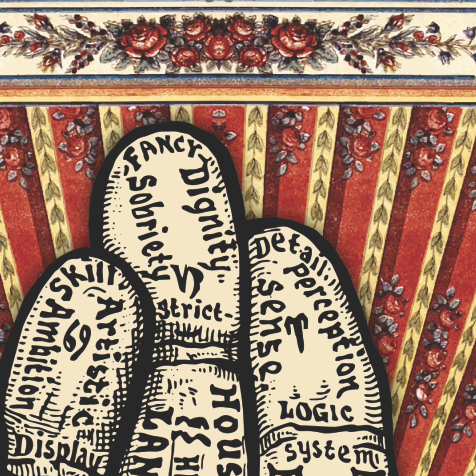 FANCY
Dignity
Sobriety
strict-
Detail.
perception
sense.
LOGIC
system
Skill
Artistic
Ambition
Display
HOUS